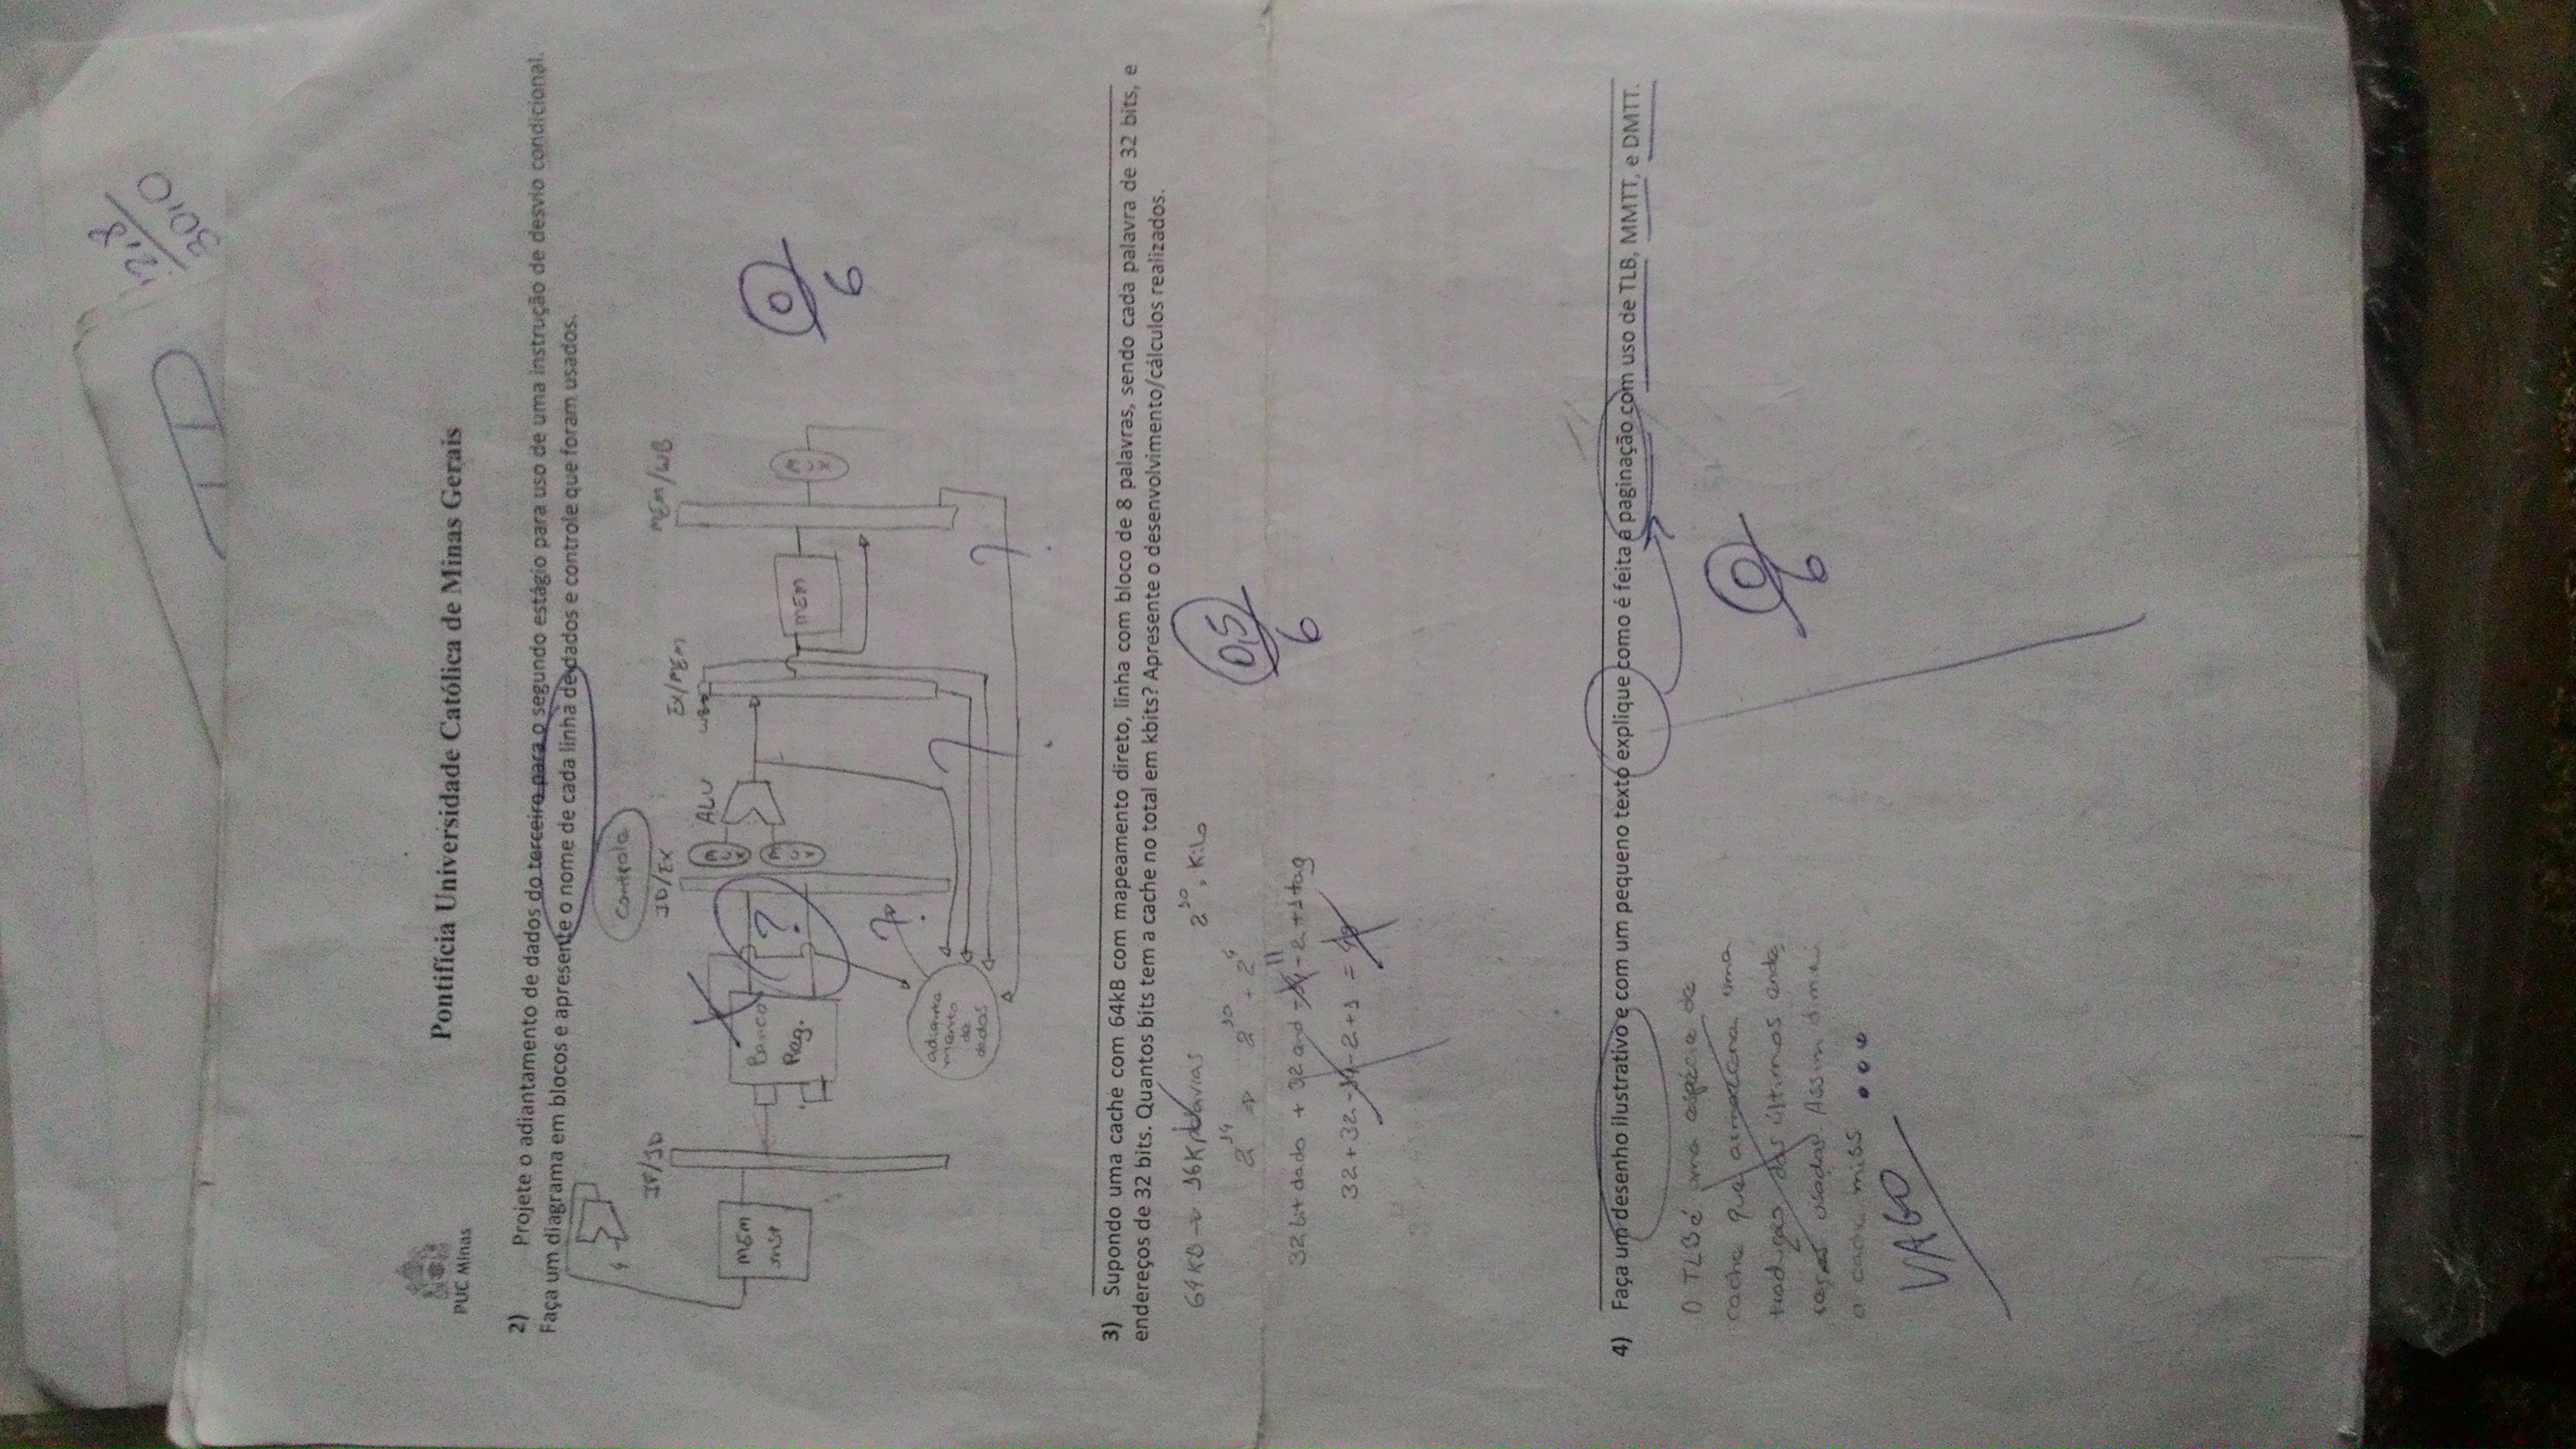 12,8
30,0
PUC Minas
Pontifícia Universidade Católica de Minas Gerais
2) Projete o adiantamento de dados do terceiro para o segundo estágio para uso de uma instrução de desvio condicional.
Faça um diagrama em blocos e apresente o nome de cada linha de dados e controle que foram usados.
Controle
IF/ID
ID/EX
EX/MEM
MEM/WB
MUX
ALU
WB
MEM
inst
Banco
Reg.
?
MUX
MEM
MUX
0
6
?
adianta
mento
de
dados
?
?
3) Supondo uma cache com 64kB com mapeamento direto, linha com bloco de 8 palavras, sendo cada palavra de 32 bits, e
endereços de 32 bits. Quantos bits tem a cache no total em kbits? Apresente o desenvolvimento/cálculos realizados.
64KB → 16K palavras 2^10 = Kilo
2^14 → 2^10 . 2^4
0,5
6
32 bit dado + 32 end - 14 11 - 2 + 1 tag
32+32-14-2+1 = 49
4) Faça um desenho ilustrativo e com um pequeno texto explique como é feita a paginação com uso de TLB, MMTT, e DMTT.
O TLB é uma espécie de
cache que armazena uma
tradução dos últimos ende
reços usados. Assim
o cache miss ...
0
6
VAGO